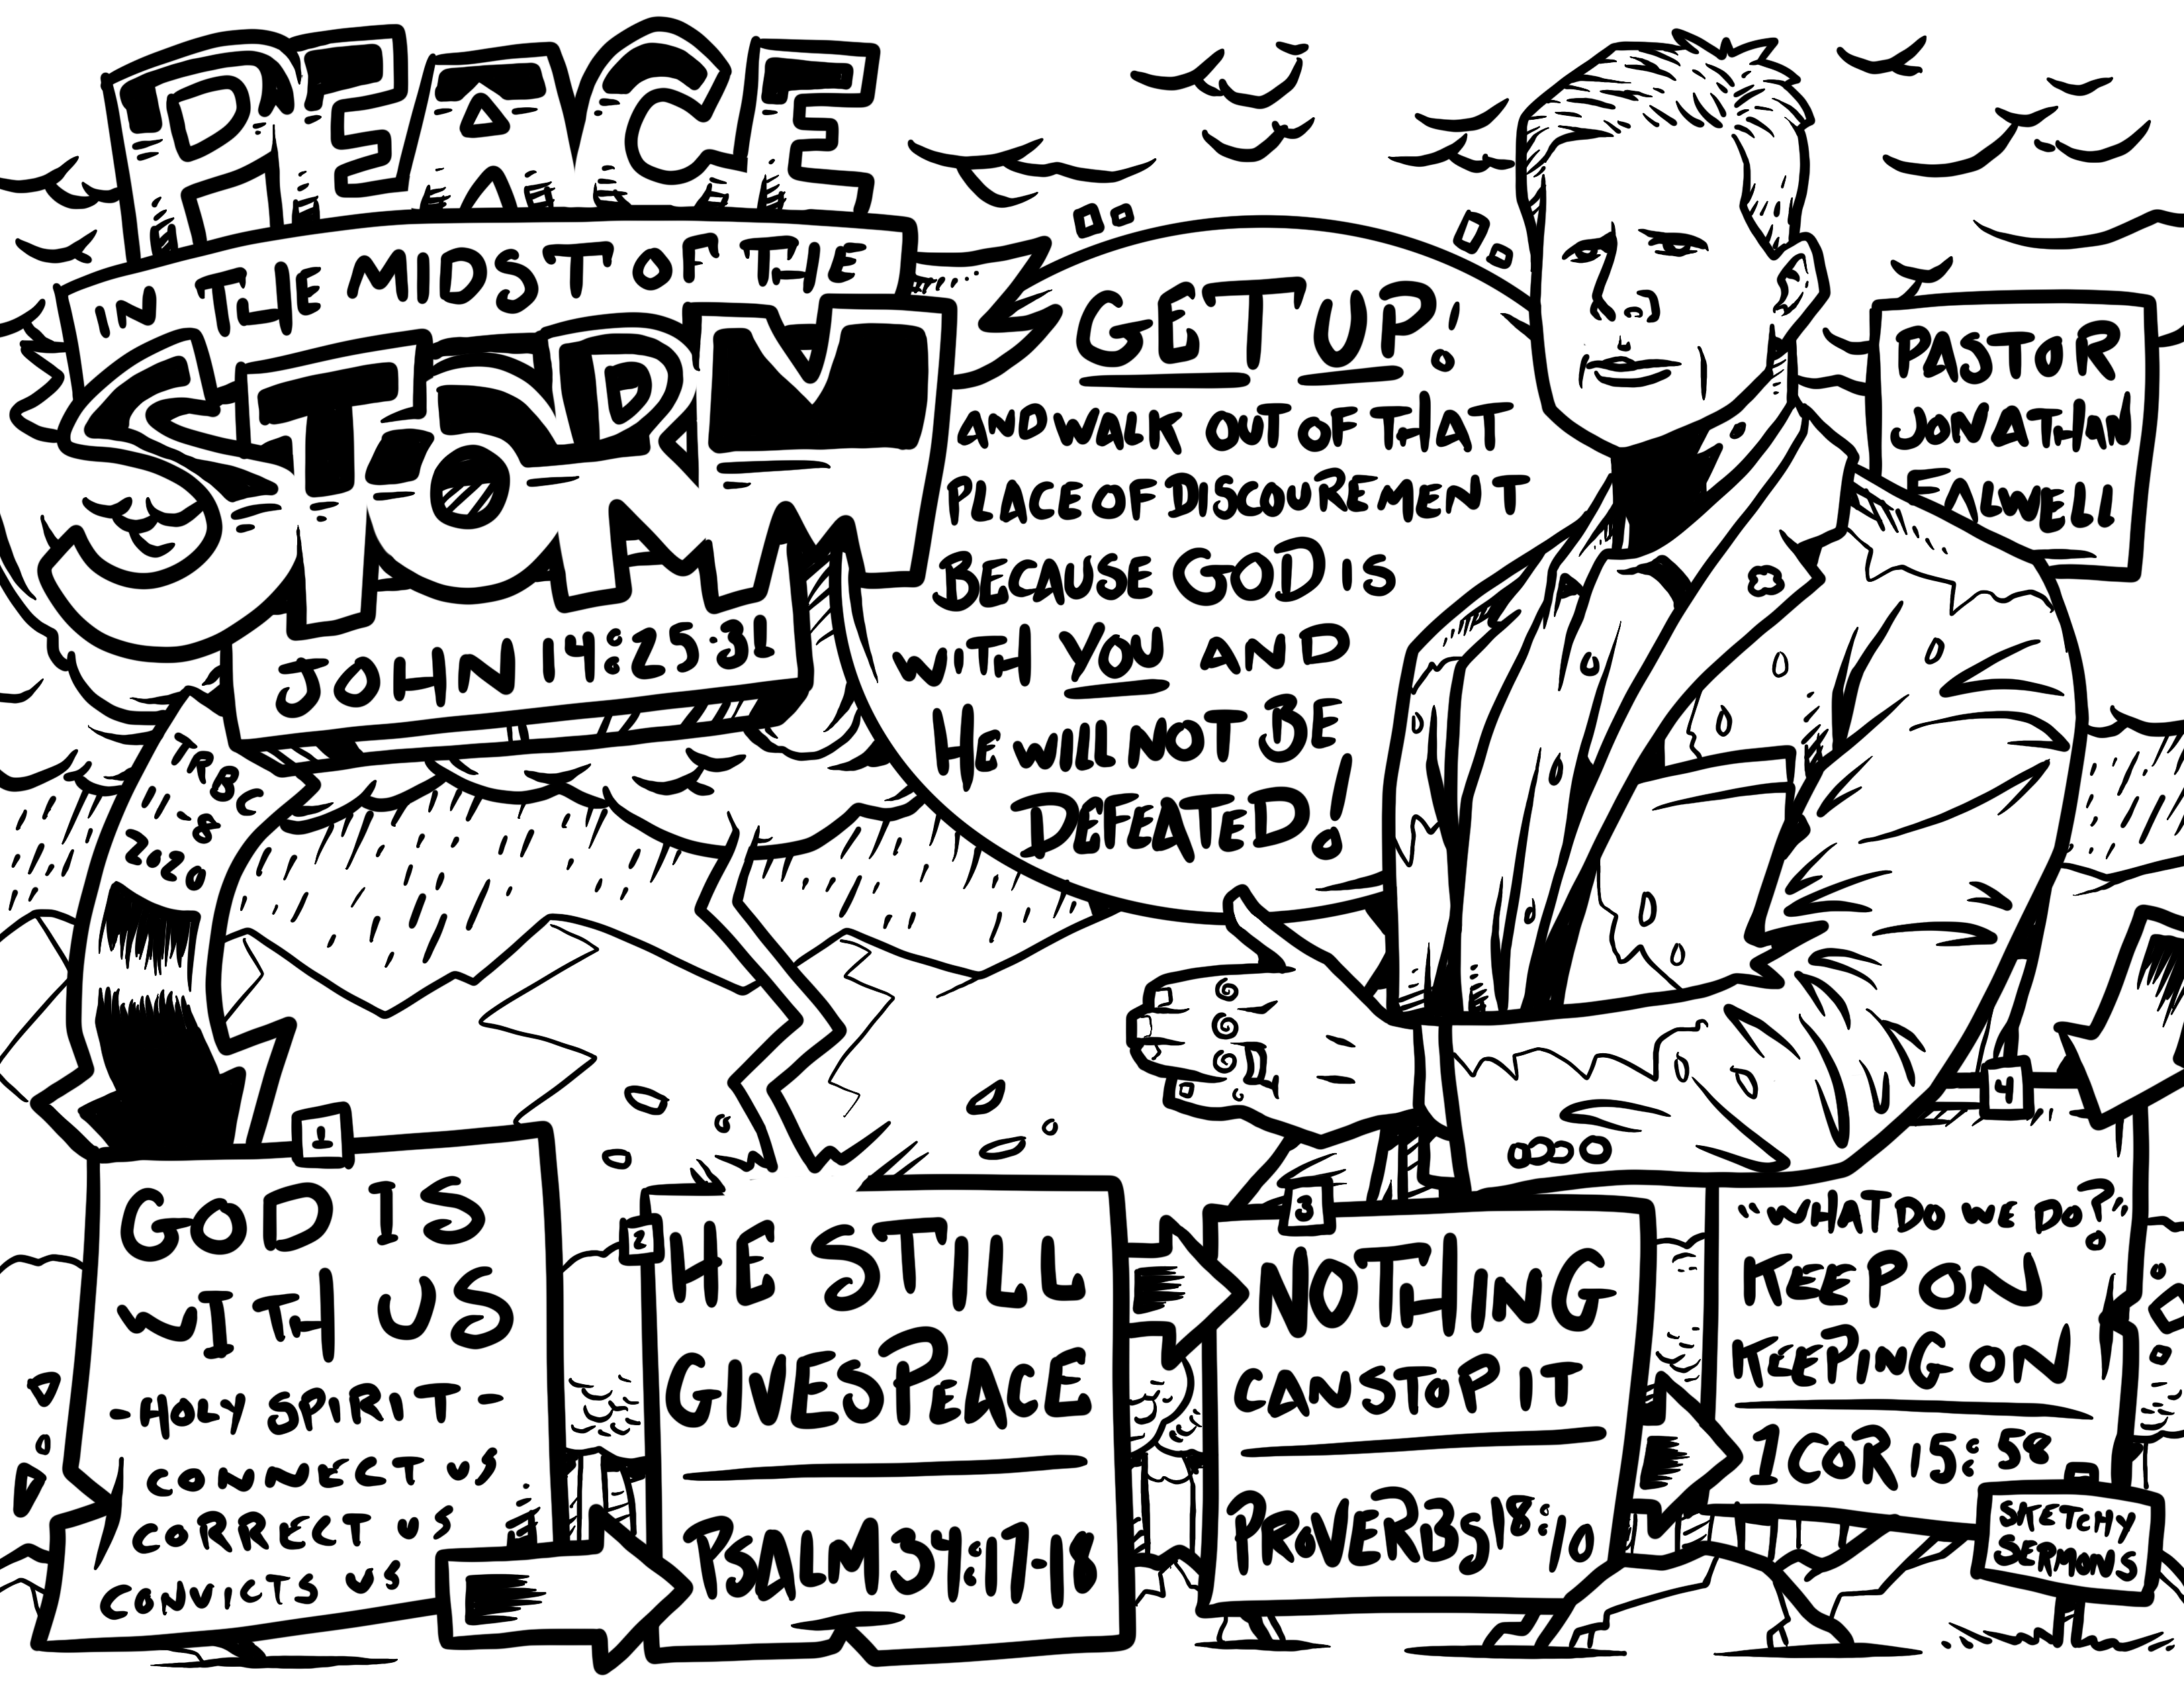 PEACE
IN THE MIDST OF THE
STORM
JOHN 14:25-31
TRBC
-8-
2020
GET UP!
AND WALK OUT OF THAT
PLACE OF DISCOUREMENT
BECAUSE GOD IS
WITH YOU AND
HE WILL NOT BE
DEFEATED!
PASTOR
JONATHAN
FALWELL
1
GOD IS
WITH US
-HOLY SPIRIT-
CONNECT US
CORRECT US
CONVICTS US
2
HE STILL
GIVES PEACE
PSALM 34:17-18
3
NOTHING
CAN STOP IT
PROVERBS 18:10
4
"WHAT DO WE DO?"
KEEP ON
KEEPING ON
1 COR 15:58
SKETCHY
SERMONS